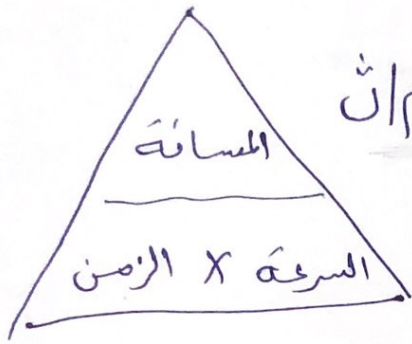 م/ث
المسافة
السرعة X الزمن